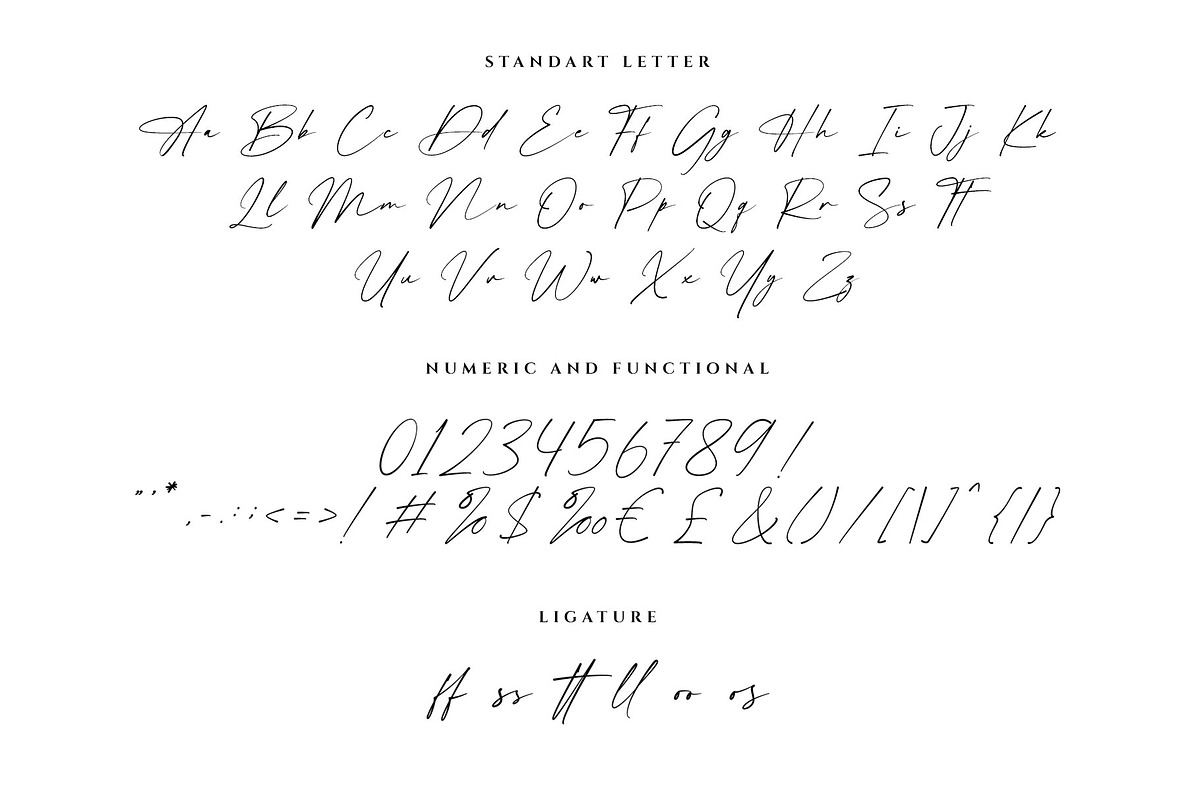 STANDART LETTER
Aa Bb Cc Dd Ee Ff Gg Hh Ii Jj Kk
Ll Mm Nn Oo Pp Qq Rr Ss Tt
Uu Vv Ww Xx Yy Zz
NUMERIC AND FUNCTIONAL
0123456789!
"'*,-.:;<=>!#%$‰€£&()/[\]^{|}
LIGATURE
ff ss tt ll oo os